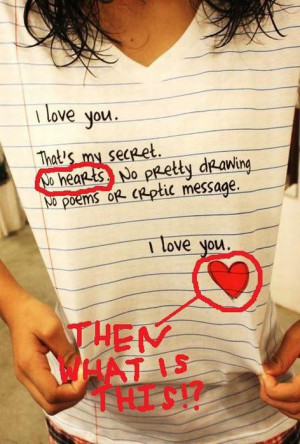 I love you.
That's my secret.
No hearts. No pretty drawing
No poems or crptic message.
I love you.
THEN
WHAT IS
THIS!?